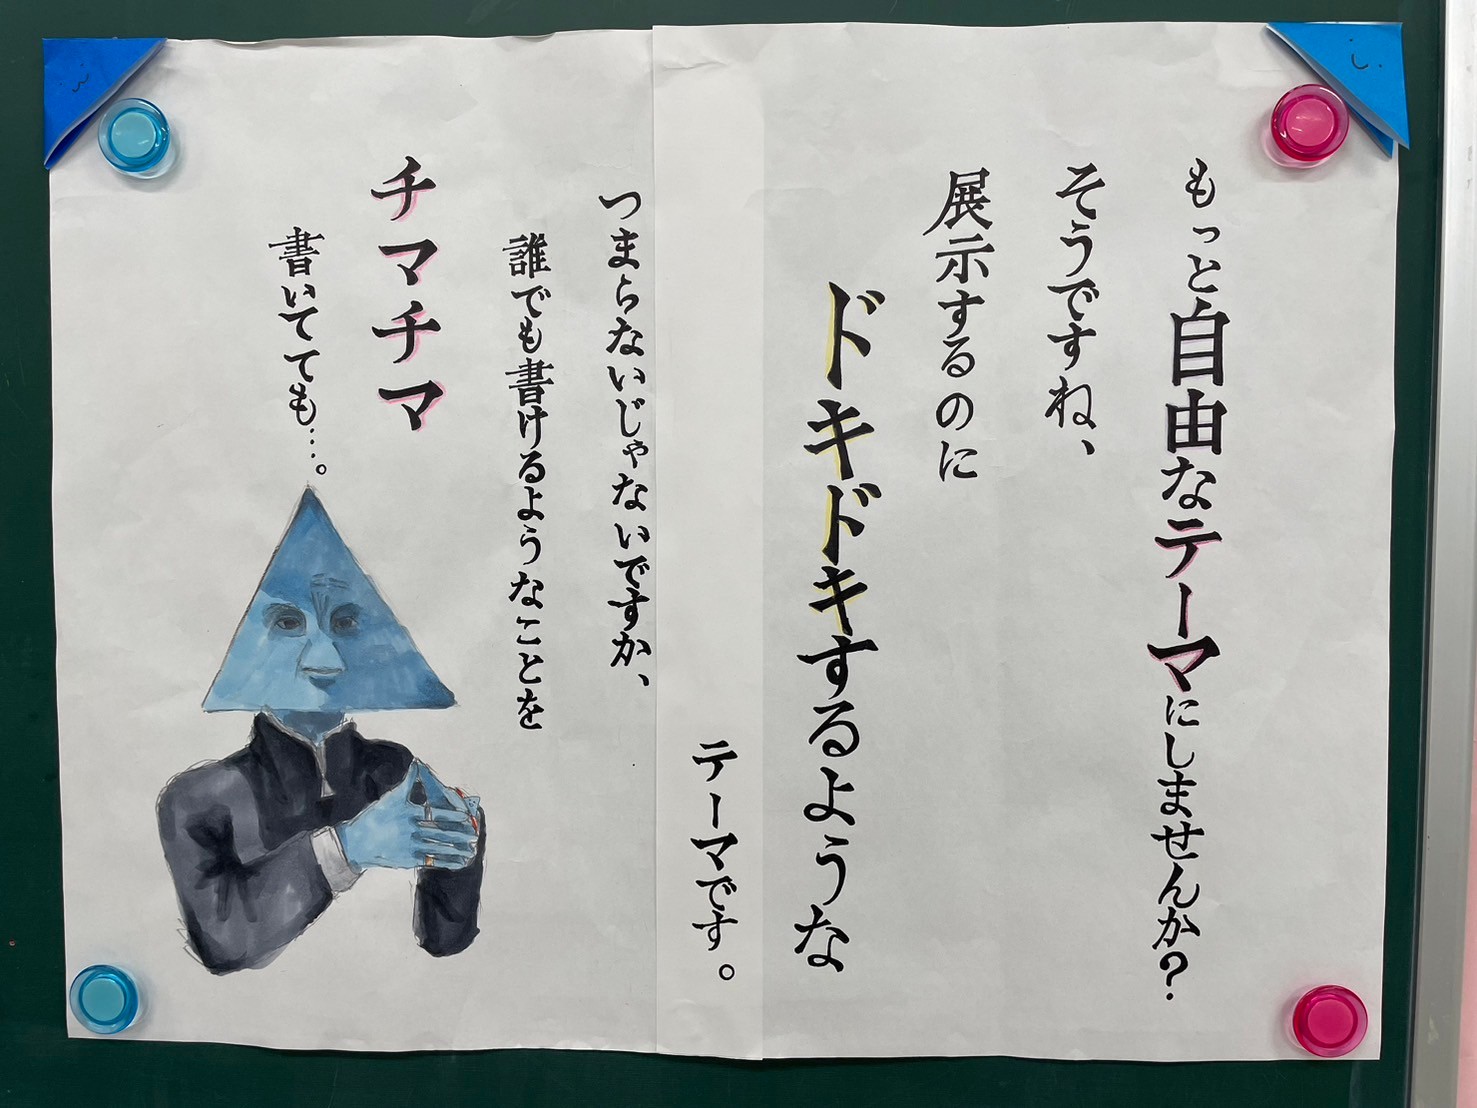 もっと自由なテーマにしませんか？
そうですね、
展示するのに
ドキドキするような
テーマです。
つまらないじゃないですか、
誰でも書けるようなことを
チマチマ
書いてても…。